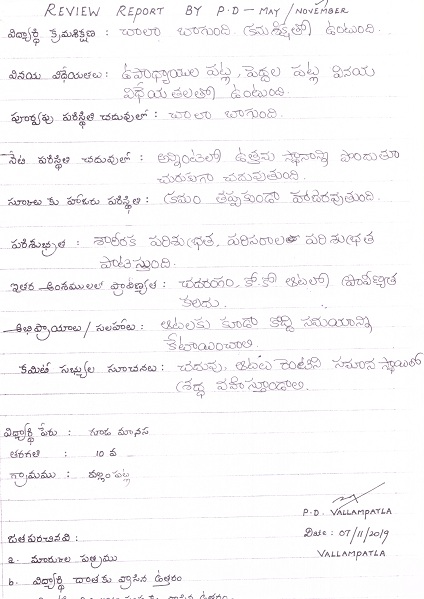 REVIEW REPORT BY P.D - MAY / NOVEMBER
విద్యార్థి క్రమశిక్షణ : చాలా బాగుంది. (క్రమశిక్షతో) ఉంటుంది.
వినయ విధేయతలు : ఉపాధ్యాయుల పట్ల, పెద్దల పట్ల వినయ
విధేయతలతో ఉంటుంది.
పూర్వపు పరిస్థితి చదువులో : చాలా బాగుంది.
నేటి పరిస్థితి చదువులో : అన్నింటిలో ఉత్తమ స్థానాన్ని పొందుతూ
చురుకుగా చదువుతుంది.
స్కూలు కు హాజరు పరిస్థితి : క్రమం తప్పకుండా హాజరవుతుంది.
పరిశుభ్రత : శారీరక పరిశుభ్రత, పరిసరాల పరిశుభ్రత
పాటిస్తుంది.
ఇతర అంశములలో ప్రావీణ్యత : చదరంగం, కో.కో ఆటలో ప్రావీణ్యత
కలదు.
అభిప్రాయాలు / సలహాలు : ఆటలకు కూడా కొద్ది సమయాన్ని
కేటాయించాలి.
కమిటి సభ్యుల సూచనలు : చదువు, ఆటలు రెంటిని సమాన స్థాయిలో
శ్రద్ధ వహిస్తూండాలి.
విద్యార్థి పేరు : గూడ మానస
తరగతి : 10 వ
గ్రామము : వల్లంపట్ల
P.D. VALLAMPATLA
జతపరచినవి : Date : 07/11/2019
a. మార్కుల పత్రము VALLAMPATLA
b. విద్యార్థి దాతకు వ్రాసిన ఉత్తరం